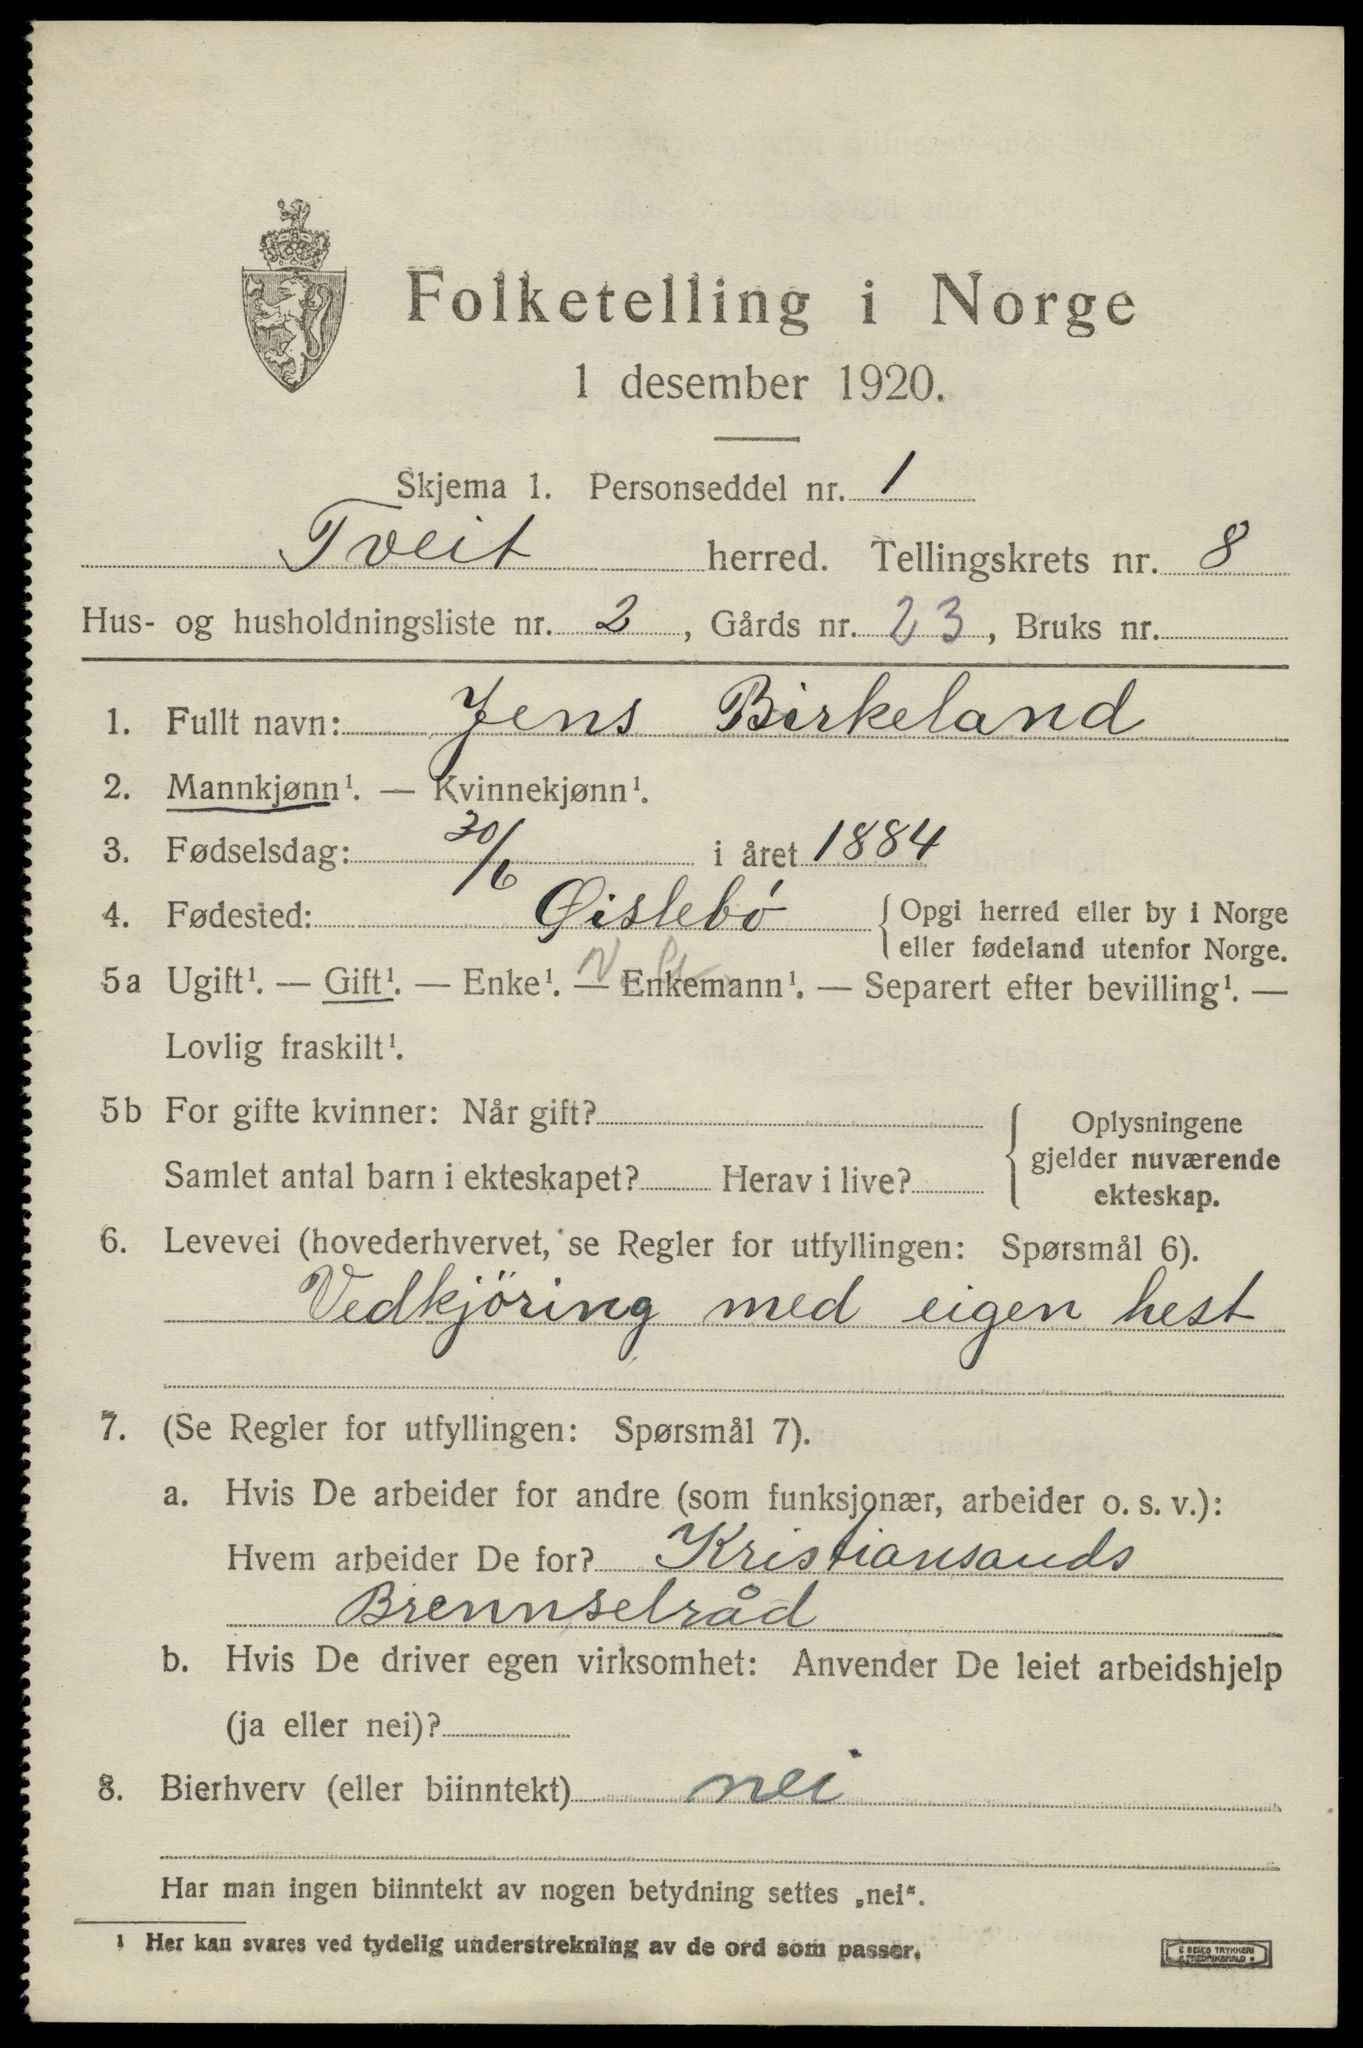 Folketelling i Norge
1 desember 1920.
Skjema 1. Personseddel nr. 1
Tveit herred. Tellingskrets nr. 8
Hus- og husholdningsliste nr. 2, Gårds nr. 23, Bruks nr.
1. Fullt navn: Jens Birkeland
2. Mannkjønn¹. — Kvinnekjønn¹.
3. Fødselsdag: 30/6 i året 1884
4. Fødested: Øislebö { Opgi herred eller by i Norge
eller fødeland utenfor Norge.
5a Ugift¹. — Gift¹. — Enke¹. — Enkemann¹. — Separert efter bevilling¹. —
Lovlig fraskilt¹.
5b For gifte kvinner: Når gift?
Samlet antal barn i ekteskapet? Herav i live?
{ Oplysningene
gjelder nuværende
ekteskap.
6. Levevei (hovederhvervet, se Regler for utfyllingen: Spørsmål 6).
Vedkjöring med eigen hest
7. (Se Regler for utfyllingen: Spørsmål 7).
a. Hvis De arbeider for andre (som funksjonær, arbeider o. s. v.):
Hvem arbeider De for? Kristiansands
Brennselråd
b. Hvis De driver egen virksomhet: Anvender De leiet arbeidshjelp
(ja eller nei)?
8. Bierhverv (eller biinntekt) nei
Har man ingen biinntekt av nogen betydning settes „nei“.
¹ Her kan svares ved tydelig understrekning av de ord som passer.